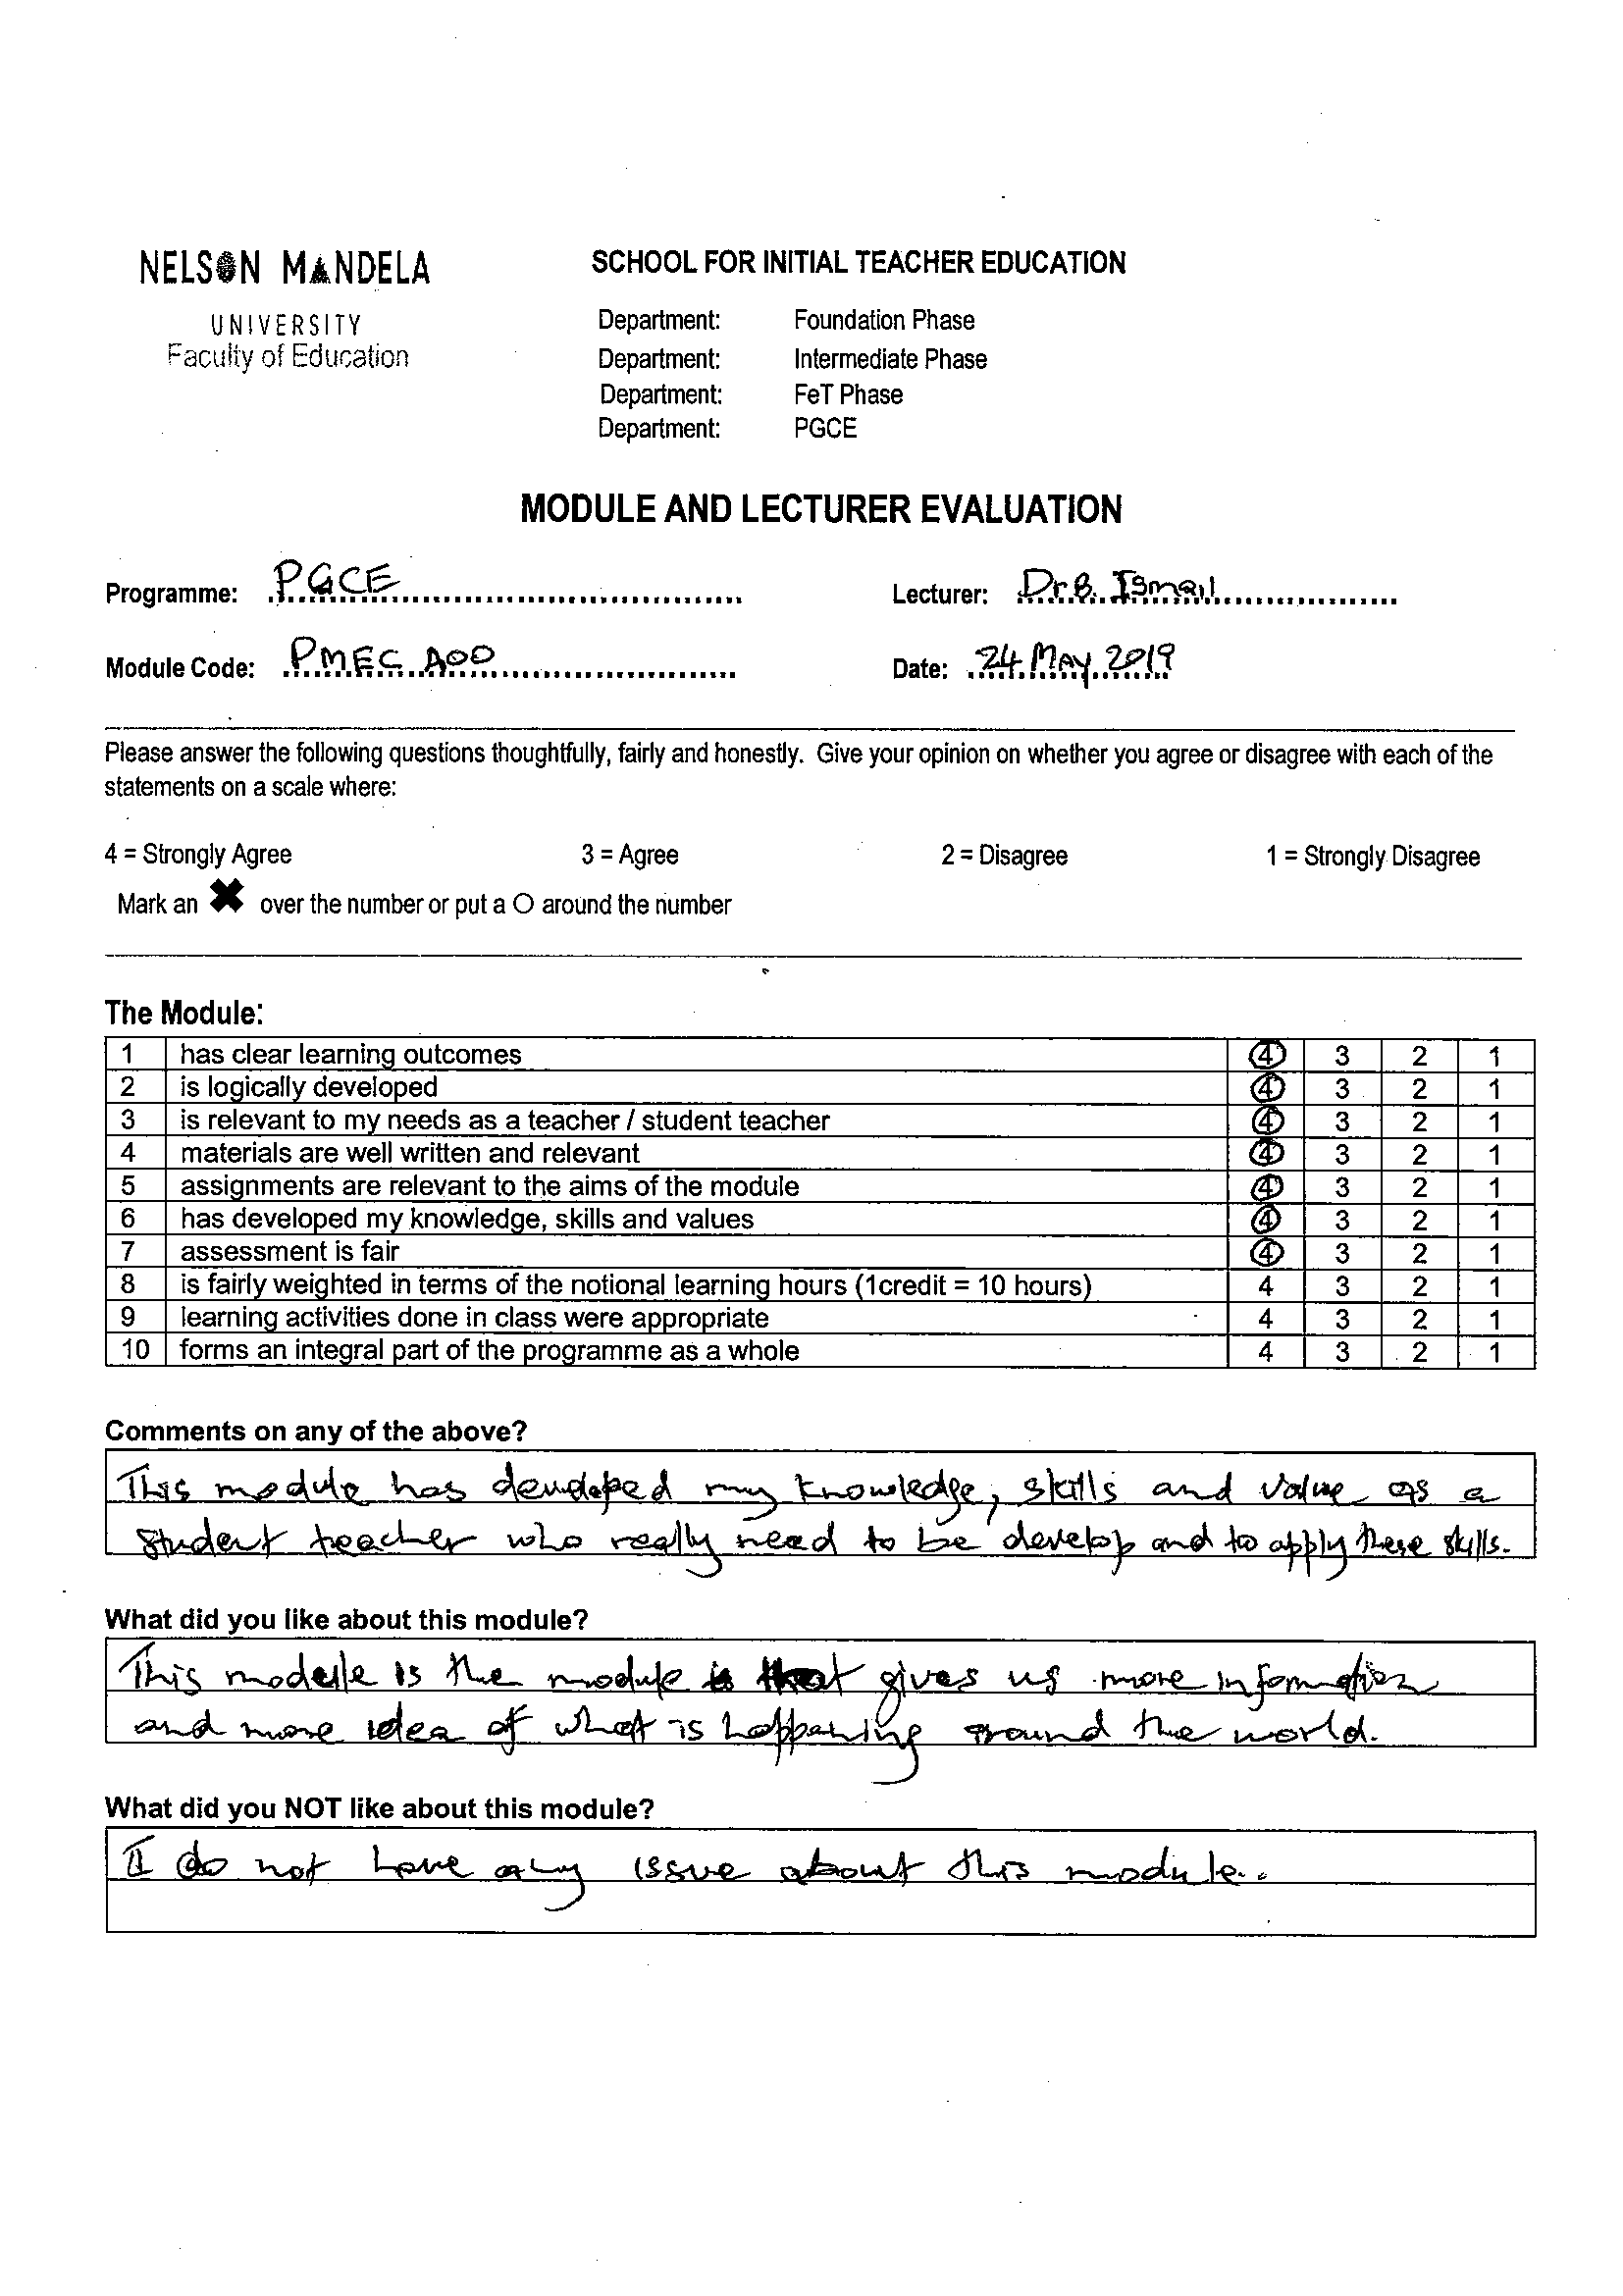 NELSON MANDELA
UNIVERSITY
Faculty of Education
SCHOOL FOR INITIAL TEACHER EDUCATION
Department: Foundation Phase
Department: Intermediate Phase
Department: FeT Phase
Department: PGCE
MODULE AND LECTURER EVALUATION
Programme: PGCE Lecturer: Dr B. Ismail
Module Code: PMEC A00 Date: 24 May 2019
Please answer the following questions thoughtfully, fairly and honestly. Give your opinion on whether you agree or disagree with each of the
statements on a scale where:
4 = Strongly Agree 3 = Agree 2 = Disagree 1 = Strongly Disagree
Mark an ✖ over the number or put a O around the number
The Module:
1 has clear learning outcomes 4 3 2 1
2 is logically developed 4 3 2 1
3 is relevant to my needs as a teacher / student teacher 4 3 2 1
4 materials are well written and relevant 4 3 2 1
5 assignments are relevant to the aims of the module 4 3 2 1
6 has developed my knowledge, skills and values 4 3 2 1
7 assessment is fair 4 3 2 1
8 is fairly weighted in terms of the notional learning hours (1credit = 10 hours) 4 3 2 1
9 learning activities done in class were appropriate 4 3 2 1
10 forms an integral part of the programme as a whole 4 3 2 1
Comments on any of the above?
This module has developed my knowledge, skills and value as a
student teacher who really need to be develop and to apply these skills.
What did you like about this module?
This module is the module that gives us more information
and more idea of what is happening around the world.
What did you NOT like about this module?
I do not have any issue about this module.